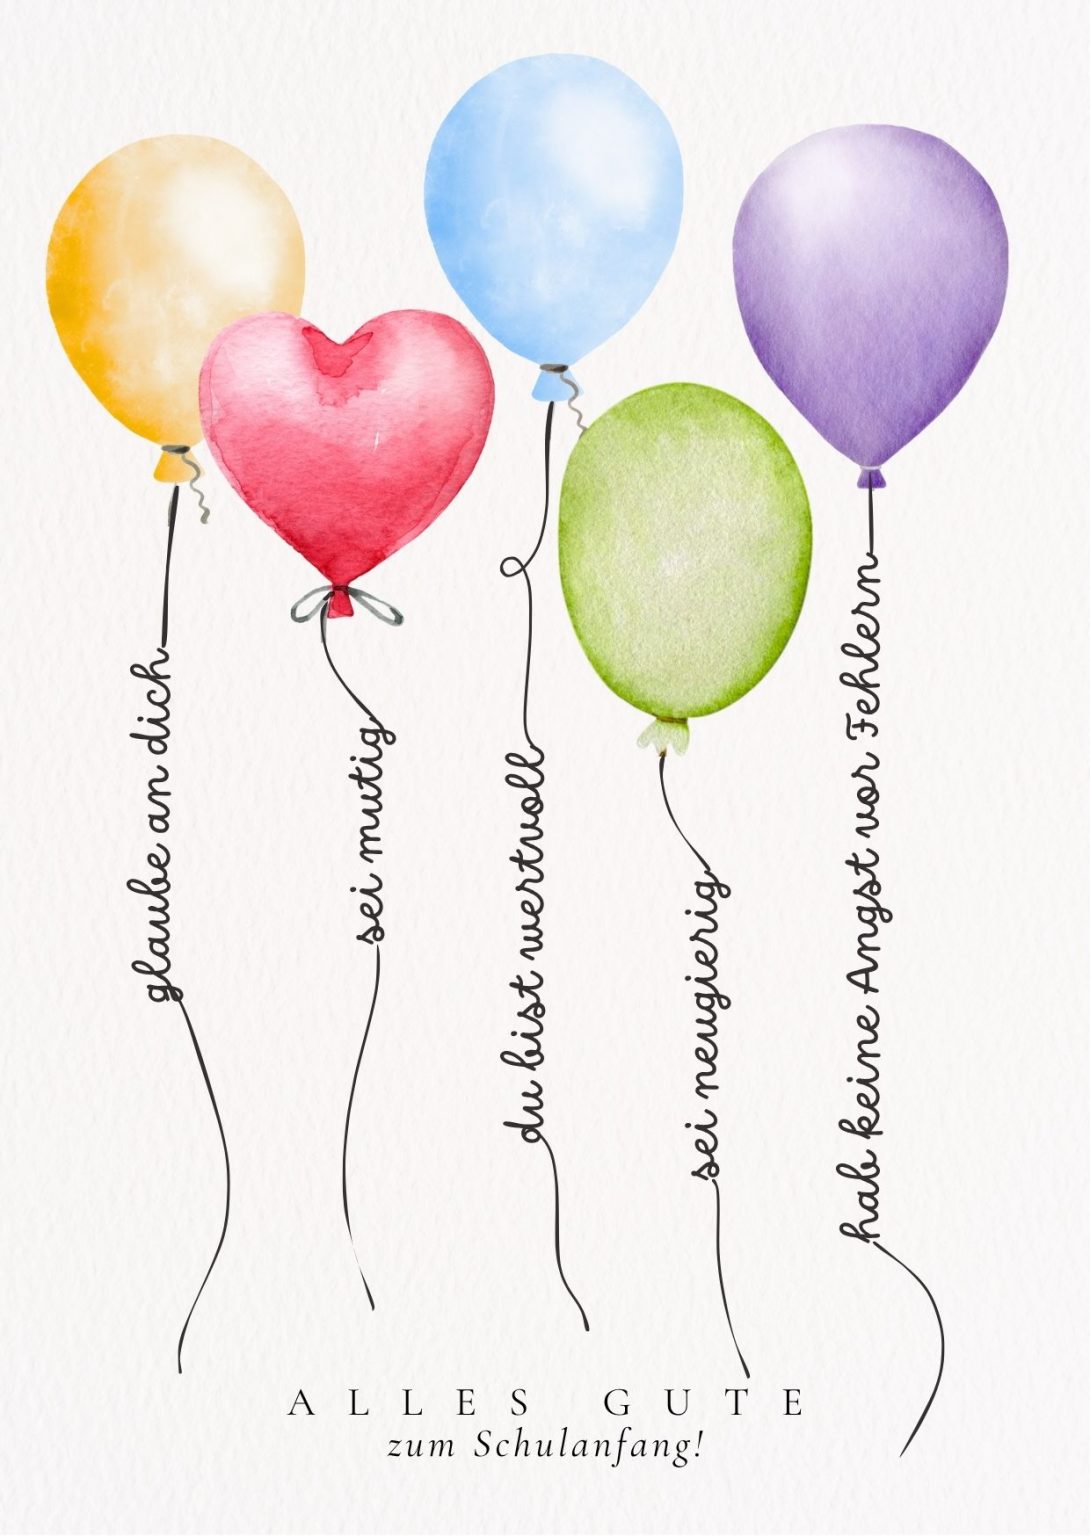 glaube an dich
sei mutig
du bist wertvoll
sei neugierig
hab keine Angst vor Fehlern
ALLES GUTE
zum Schulanfang!